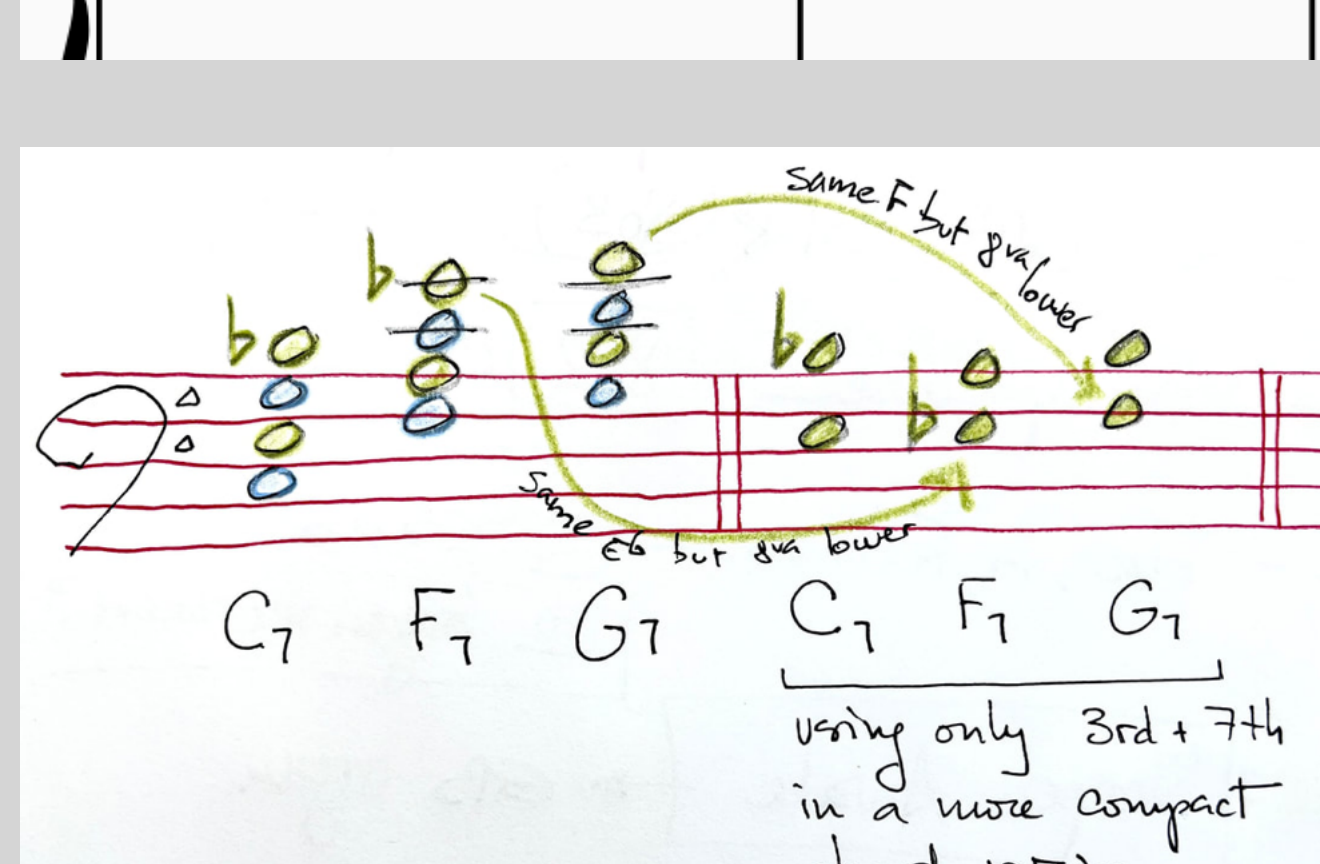 same F but 8va lower
Same Eb but 8va lower
C7 F7 G7 C7 F7 G7
using only 3rd + 7th
in a more compact